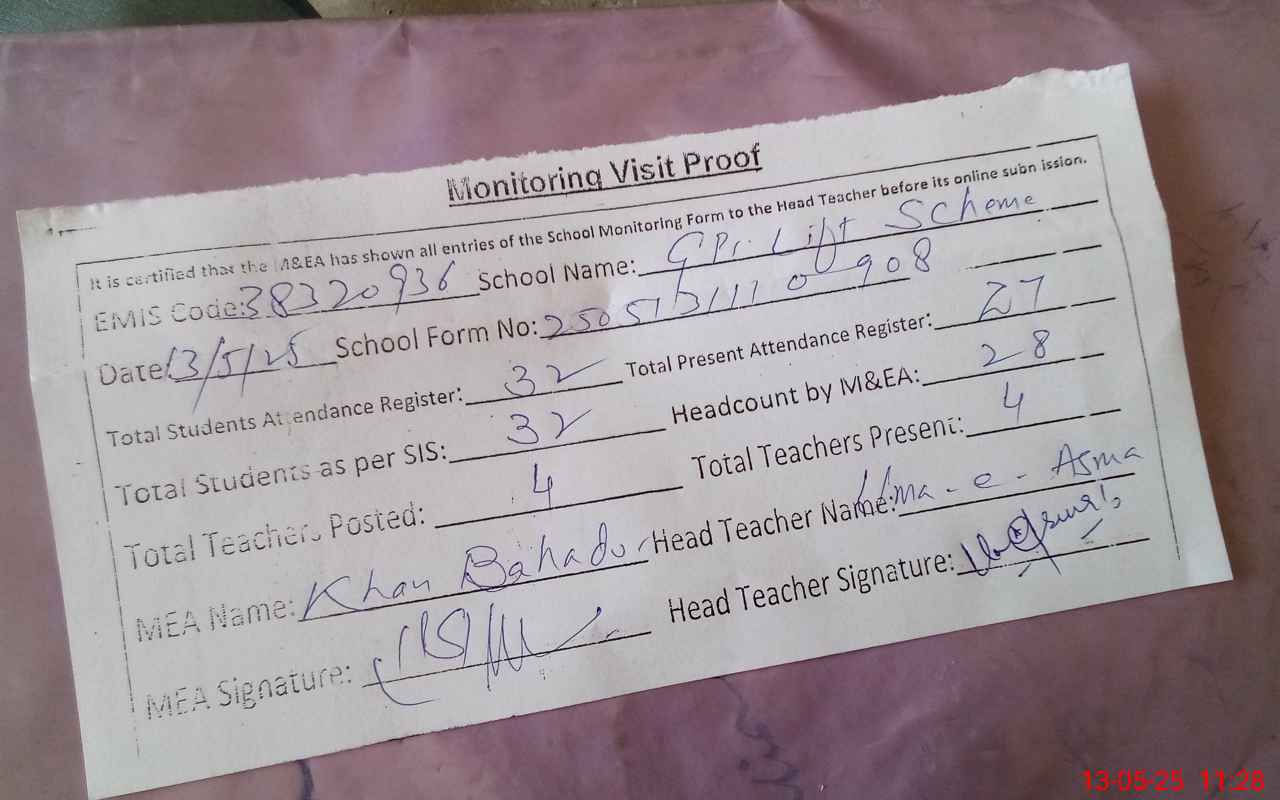 Monitoring Visit Proof
It is certified that the M&EA has shown all entries of the School Monitoring Form to the Head Teacher before its online submission.
EMIS Code: 38320936 School Name: GPS Lift Scheme
Date 13/5/25 School Form No: 2505131110908
Total Students Attendance Register: 32 Total Present Attendance Register: 27
Total Students as per SIS: 32 Headcount by M&EA: 28
Total Teachers Posted: 4 Total Teachers Present: 4
MEA Name: Khan Bahadur Head Teacher Name: Uma-e-Asma
MEA Signature: Head Teacher Signature:
13-05-25 11:28